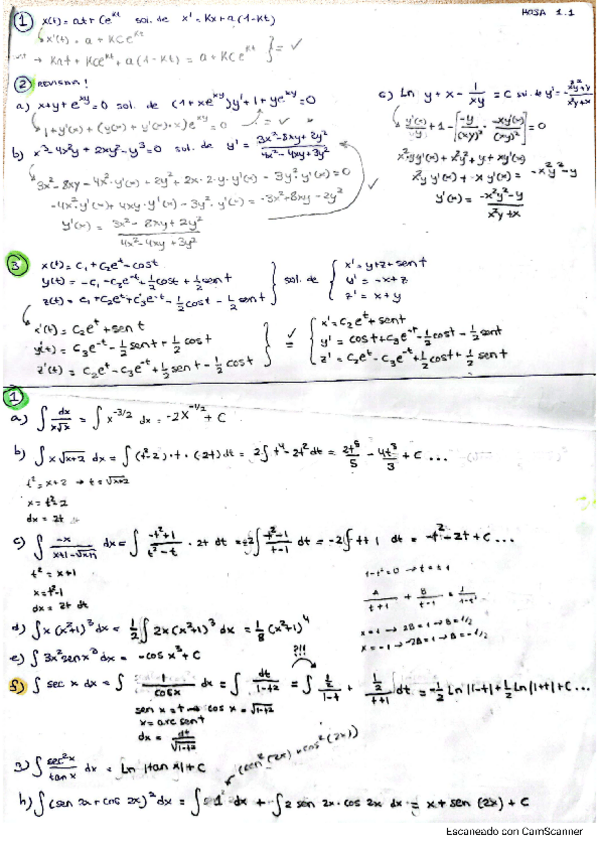 HOJA 1.1
① x(t) = at + Ce^{Kt} sol. de x' = Kx + a(1-Kt)
x'(t) = a + KCe^{Kt}
Kat + KCe^{Kt} + a(1-Kt) = a + KCe^{Kt} } = ✓
② REVISAR!
a) x+y+e^{xy}=0 sol. de (1+xe^{xy})y'+1+ye^{xy}=0
1+y'(x)+(y(x)+y'(x)·x)e^{xy}=0 = ✓
b) x³-4x²y+2xy²-y³=0 sol. de y' = \frac{3x²-8xy+2y²}{4x²-4xy+3y²}
3x²-8xy-4x²·y'(x)+2y²+2x·2·y·y'(x)-3y²·y'(x)=0
-4x²·y'(x)+4xy·y'(x)-3y²·y'(x)=-3x²+8xy-2y² ✓
y'(x) = \frac{3x²-8xy+2y²}{4x²-4xy+3y²}
c) Ln y + x - \frac{1}{xy} = C sol. de y' =
\frac{y'(x)}{y} + 1 - [\frac{-y}{(xy)²} · \frac{-xy'(x)}{(xy)²}] = 0
x²y y'(x) + x²y² + y + xy'(x)
x²y y'(x) + x y'(x) = -x²y²-y
y'(x) = \frac{-x²y²-y}{x²y+x}
③ x(t) = C₁+C₂e^t-cost
y(t) = -C₁-C₃e^{-t}-\frac{1}{2}cost+\frac{1}{2}sent
z(t) = C₁+C₂e^t+C₃e^{-t}-\frac{1}{2}cost-\frac{1}{2}sent
} sol. de {
x' = y+z+sent
y' = -x+z
z' = x+y
x'(t) = C₂e^t+sent
y'(t) = C₃e^{-t}-\frac{1}{2}sent+\frac{1}{2}cost
z'(t) = C₂e^t-C₃e^{-t}+\frac{1}{2}sent-\frac{1}{2}cost
} = ✓ {
x' = C₂e^t+sent
y' = cost+C₃e^{-t}-\frac{1}{2}cost-\frac{1}{2}sent
z' = C₂e^t-C₃e^{-t}+\frac{1}{2}cost+\frac{1}{2}sent
①
a) ∫\frac{dx}{x√x} = ∫x^{-3/2} dx = -2x^{-1/2} + C
b) ∫x√(x+2) dx = ∫(t²-2)·t·(2t)dt = 2∫t⁴-2t²dt = \frac{2t⁵}{5} - \frac{4t³}{3} + C ...
t² = x+2 → t = √(x+2)
x = t²-2
dx = 2t
c) ∫\frac{-x}{x+1-√(x+1)} dx = ∫\frac{-t²+1}{t²-t} · 2t dt = -2∫\frac{t²-1}{t-1} dt = -2∫t+1 dt = -t²-2t+C ...
t² = x+1
x = t²-1
dx = 2t dt
1-t²=0 → t=±1
\frac{A}{t+1} + \frac{B}{t-1} = \frac{1}{1-t²}
d) ∫x(x²+1)³dx = \frac{1}{2}∫2x(x²+1)³ dx = \frac{1}{8}(x²+1)⁴
e) ∫3x²senx³dx = -cosx³+C
?!!
f) ∫sec x dx = ∫\frac{1}{cosx} dx = ∫\frac{dt}{1-t²} = ∫\frac{\frac{1}{2}}{1-t} + \frac{\frac{1}{2}}{t+1}dt = -\frac{1}{2}Ln|1-t|+\frac{1}{2}Ln|1+t|+C ...
sen x = t → cos x = √(1-t²)
x = arc sen t
dx = \frac{dt}{√(1-t²)}
g) ∫\frac{sec²x}{tanx} dx = Ln|tanx|+C
(sen²(2x)+cos²(2x))
h) ∫(sen 2x+cos 2x)²dx = ∫1 dx + ∫2 sen 2x·cos 2x dx = x + sen(2x) + C
Escaneado con CamScanner